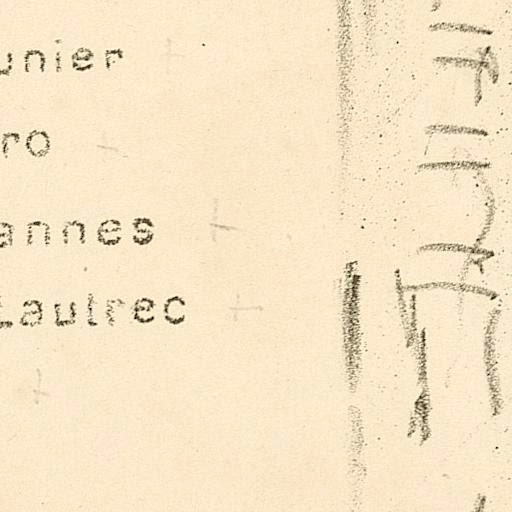 unier
ro
annes
Lautrec